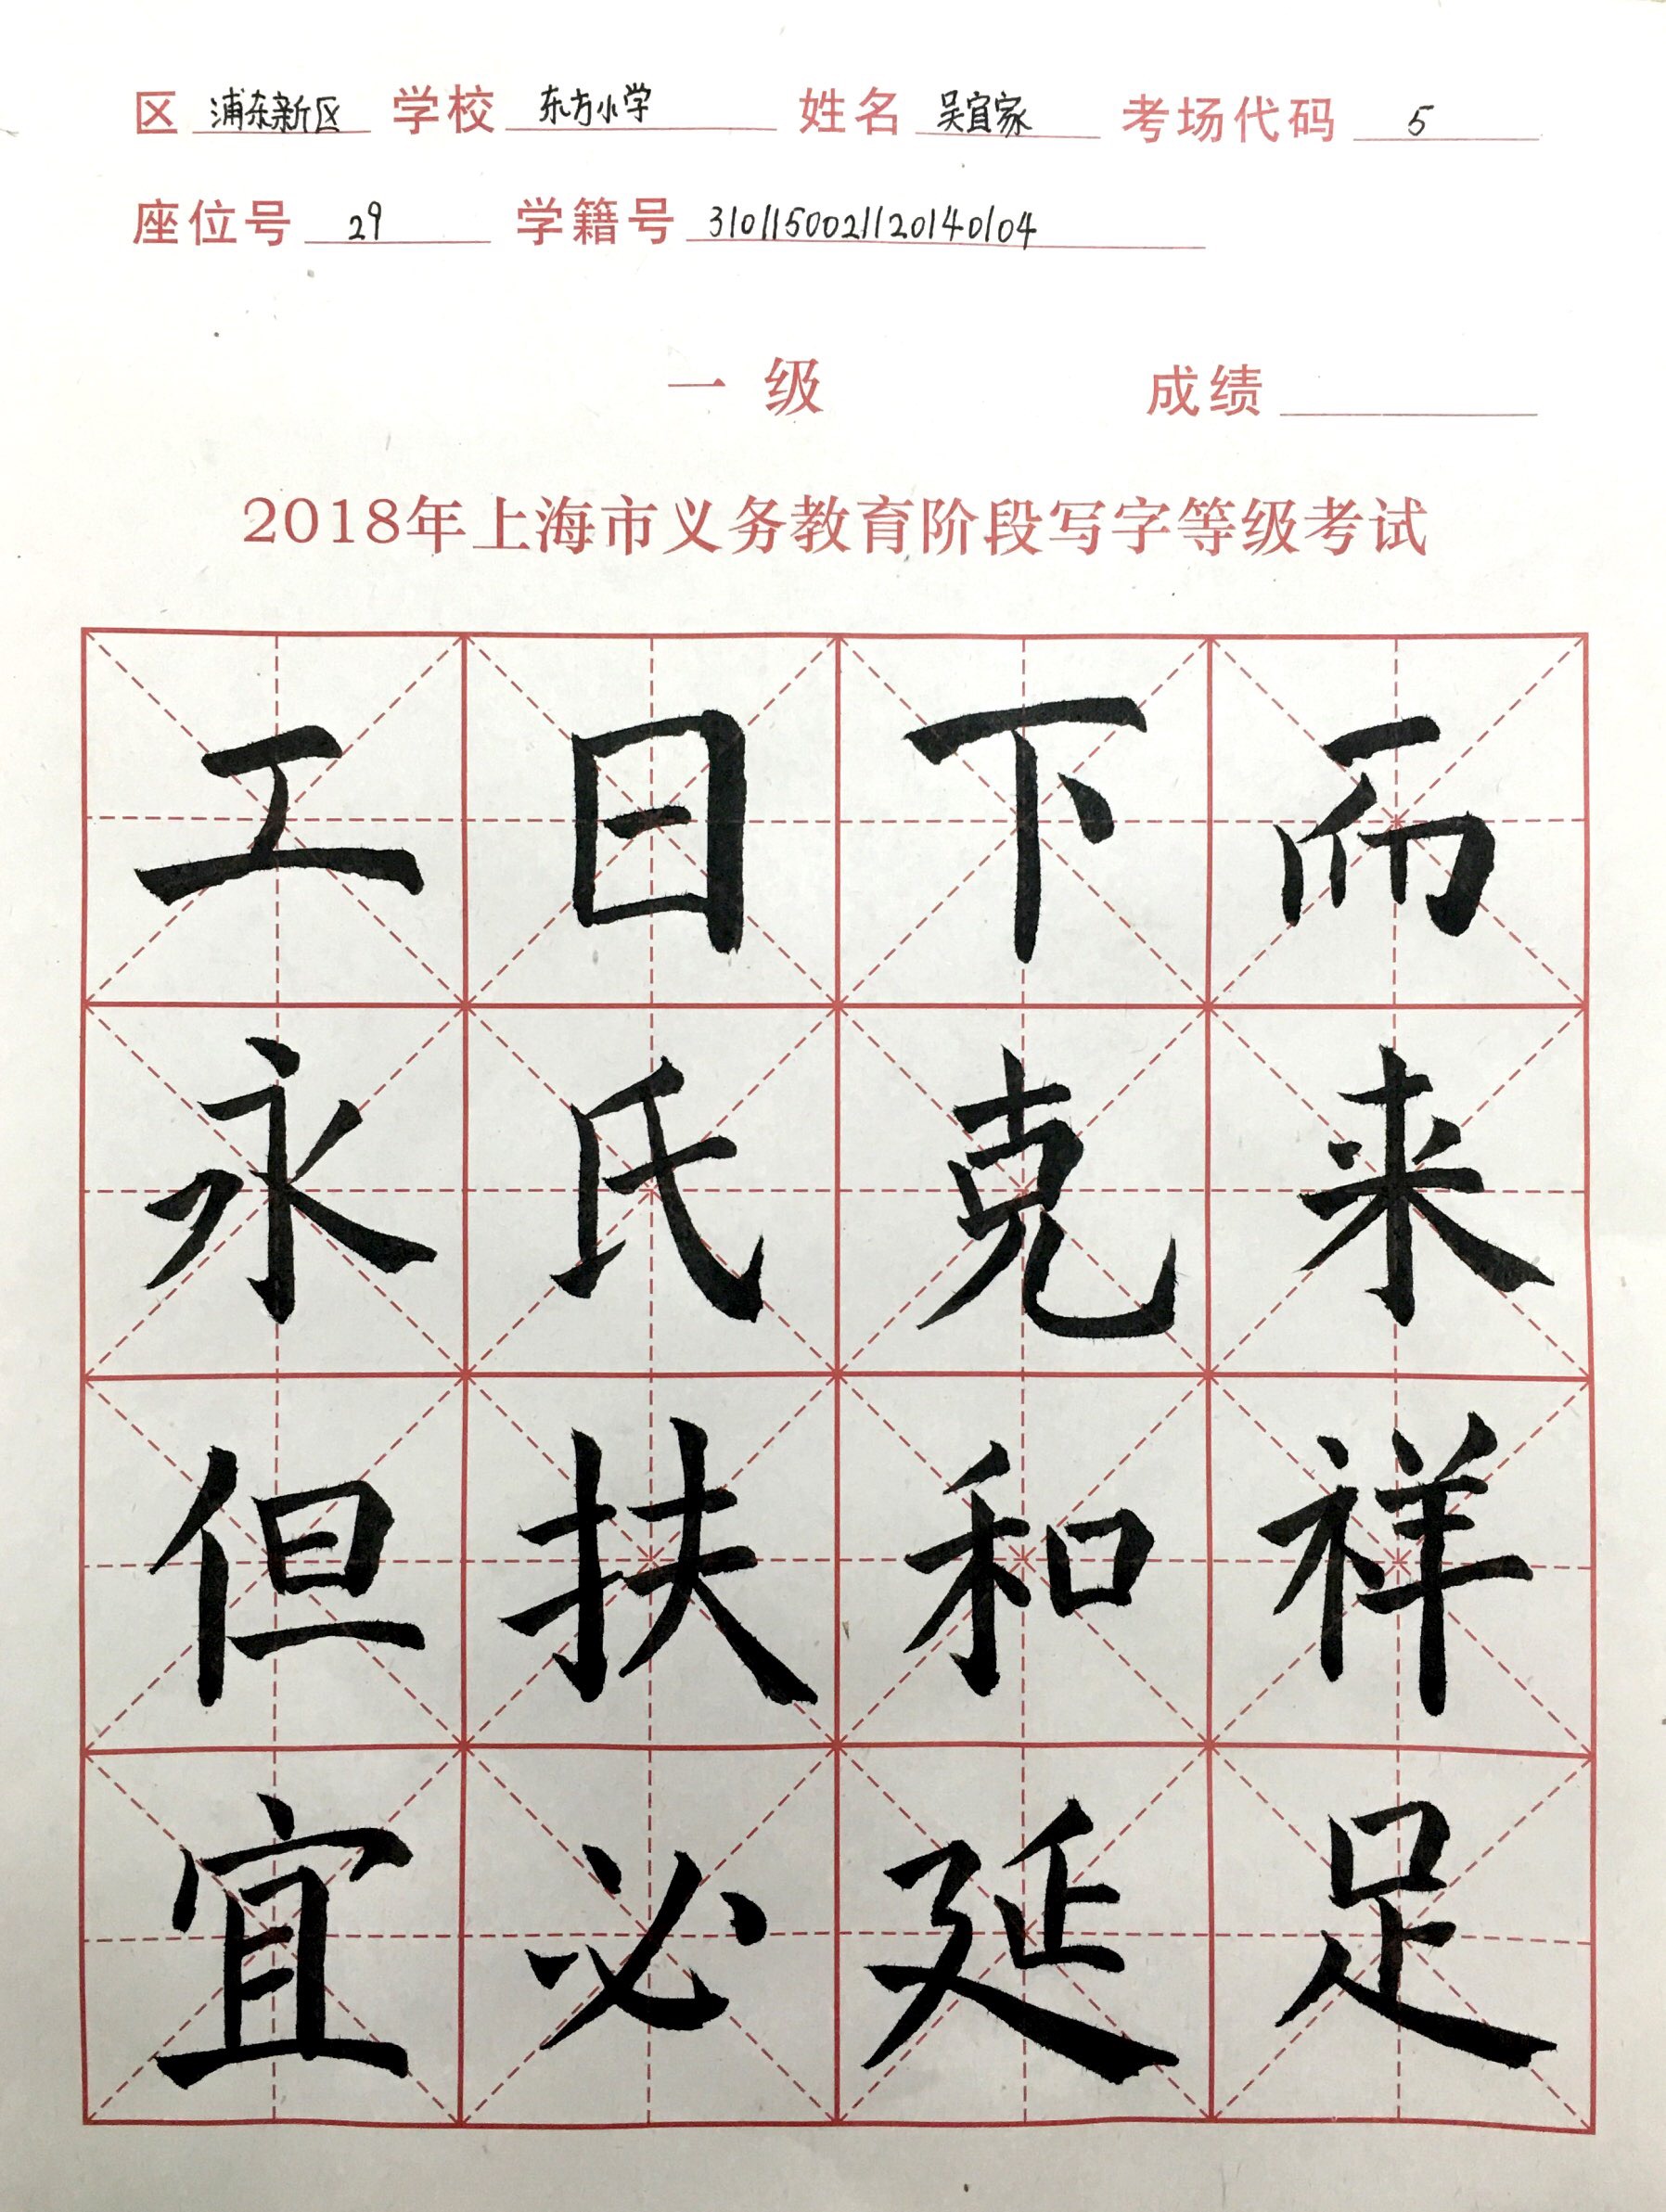 区 浦东新区 学校 东方小学 姓名 吴宜家 考场代码 5
座位号 29 学籍号 3101150021120140104
一级 成绩
2018年上海市义务教育阶段写字等级考试
工日下而
永氏克来
但扶和祥
宜必延足